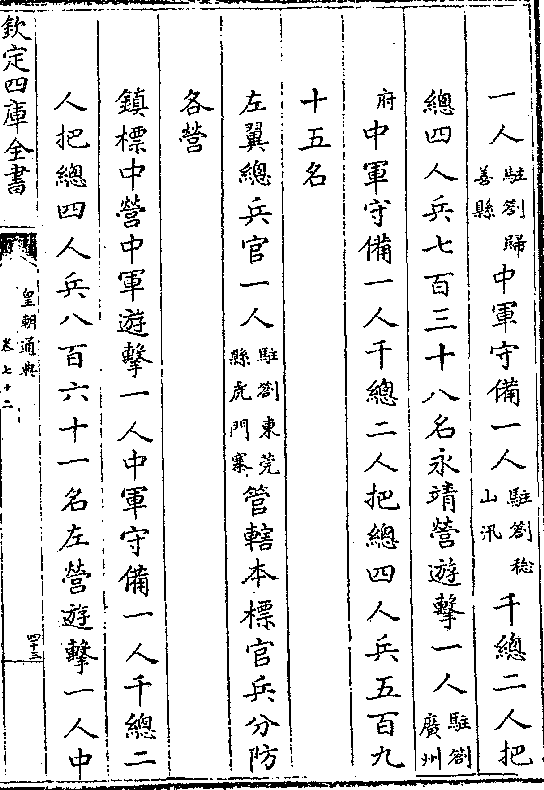 一人駐劄歸善縣中軍守備一人駐劄稔山汛千總二人把
總四人兵七百三十八名永靖營遊擊一人駐劄廣州
府中軍守備一人千總二人把總四人兵五百九
十五名
左翼總兵官一人駐劄東莞縣虎門寨管轄本標官兵分防
各營
鎮標中營中軍遊擊一人中軍守備一人千總二
人把總四人兵八百六十一名左營遊擊一人中
欽定四庫全書
皇朝通典
卷七十二
四十三